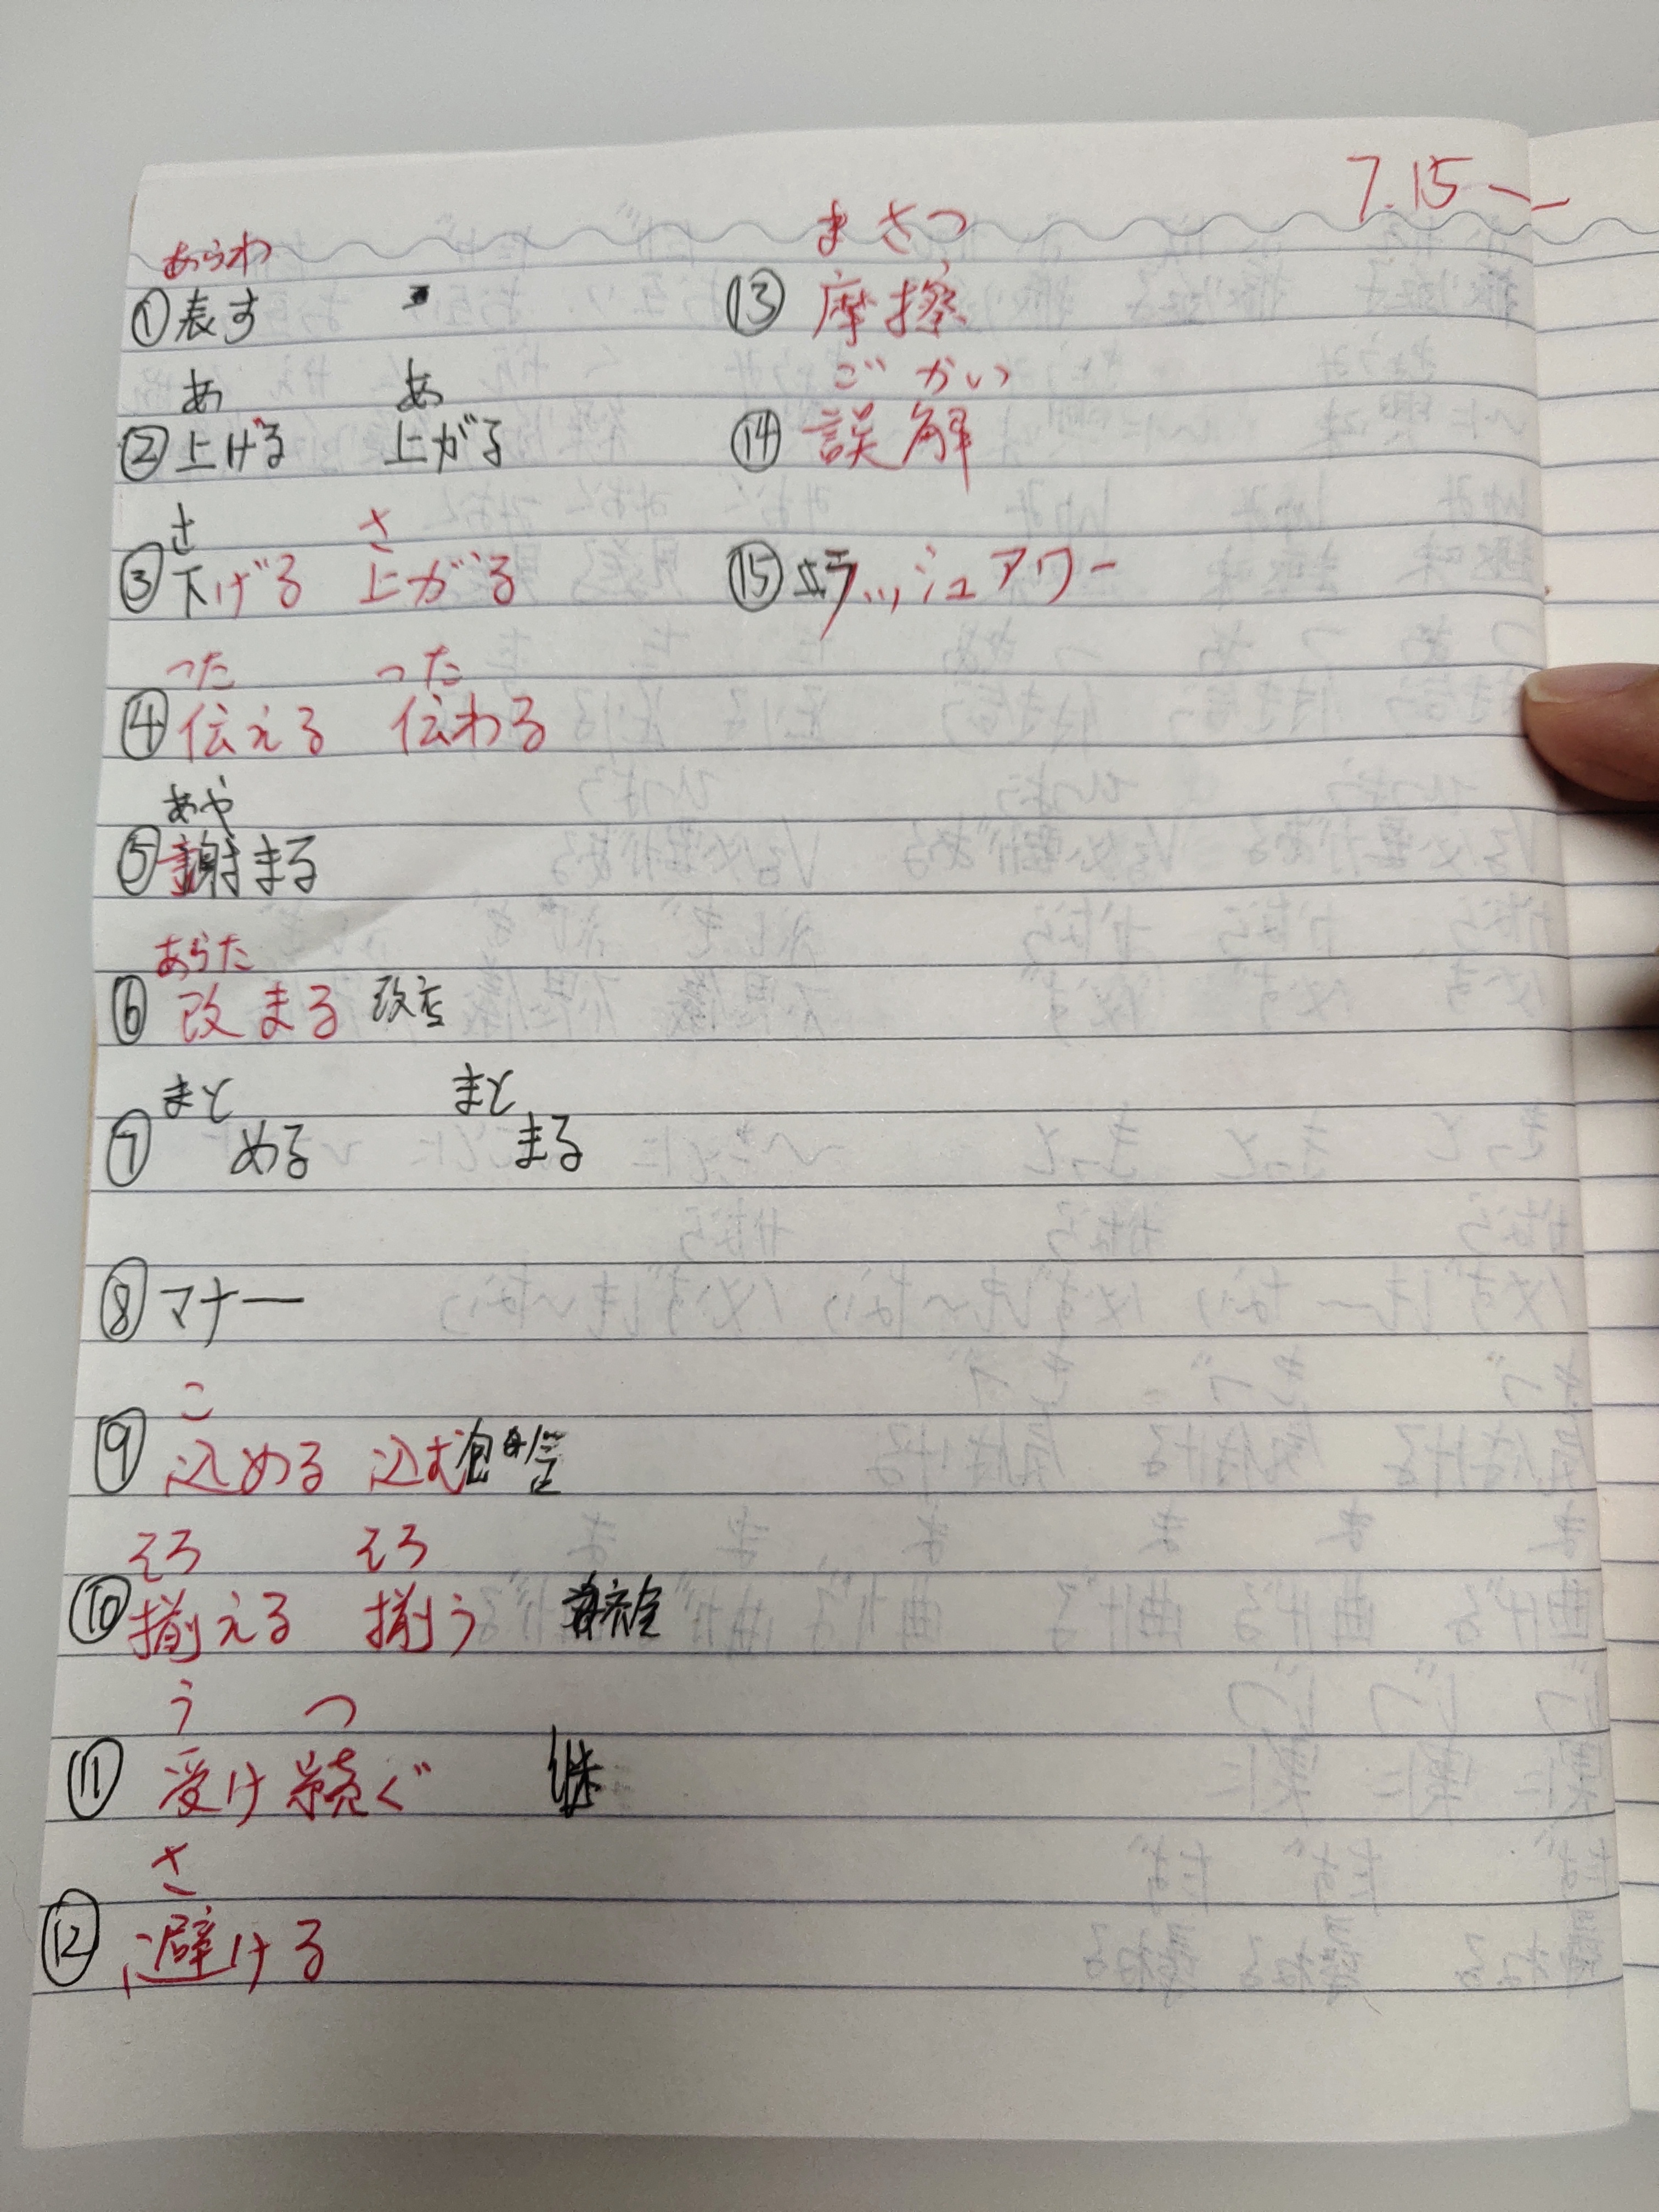 7.15
あらわ
①表す
あ あ
②上げる 上がる
さ さ
③下げる 上がる
つた つた
④伝える 伝わる
あや
⑤謝まる
あらた
⑥改まる
まと まと
⑦ める まる
⑧マナー
こ
⑨込める 込む
そろ そろ
⑩揃える 揃う
う つ
⑪受け続ぐ
さ
⑫避ける
まさつ
⑬摩擦
ごかい
⑭誤解
⑮ラッシュアワー